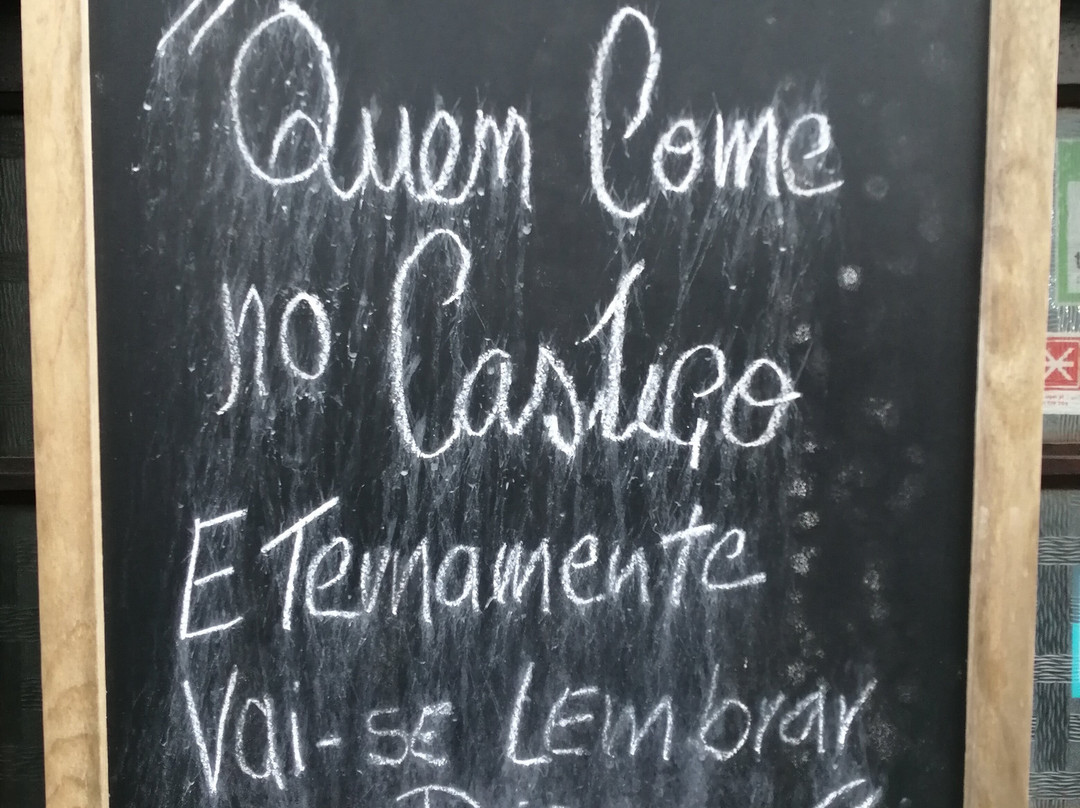 "Quem Come
no Castigo
E Ternamente
Vai-se Lembrar